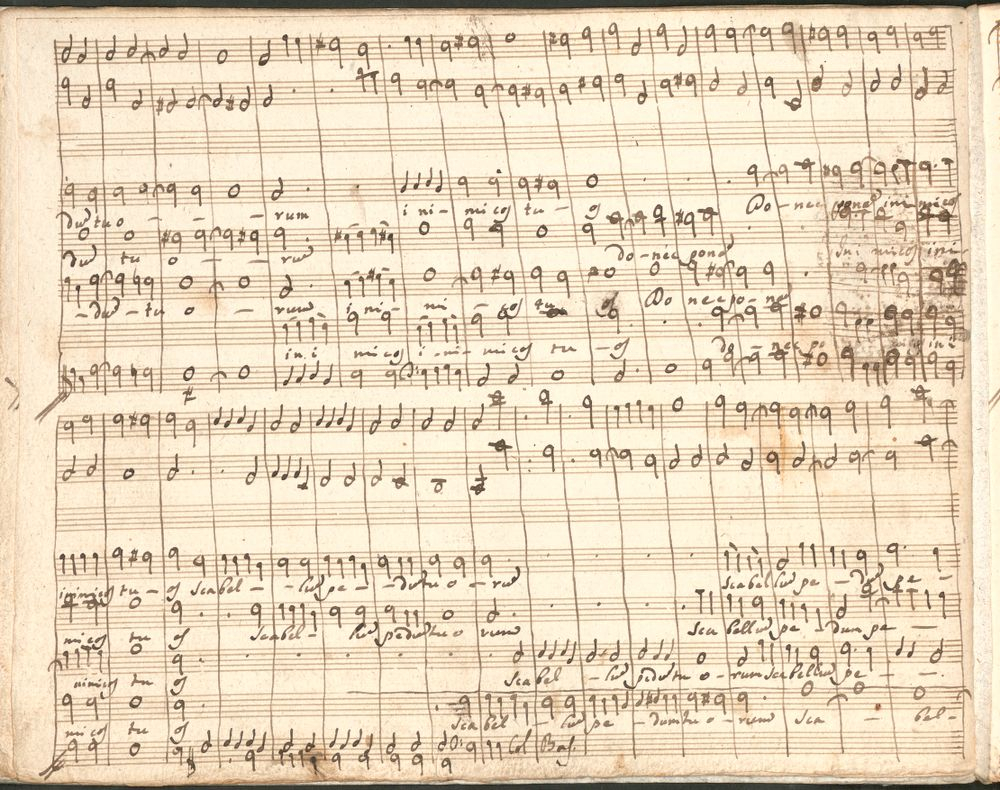 dū tuo - - - rum i ni - micos tu - os Do - nec ponā inimicos
dū tu o - - - rū do - nec ponā ini micos ini -
- dū - tu o - rum i ni - mi - cos tu os Do nec po - nā
ini micos i - ni - micos tu - os do - nec po
inimicos tu - os scabel - - lū pe - - dū tu o - rū scabellū pe - dū pe -
micos tu os scabel - lū pedū tu o rum scabellū pe - dum pe -
nimicos tu os scabel - lū pedū tu o - rum scabellū pe - -
micos tu os scabel - lū pe - dum tu o - rum sca - bel -
Col Bas.